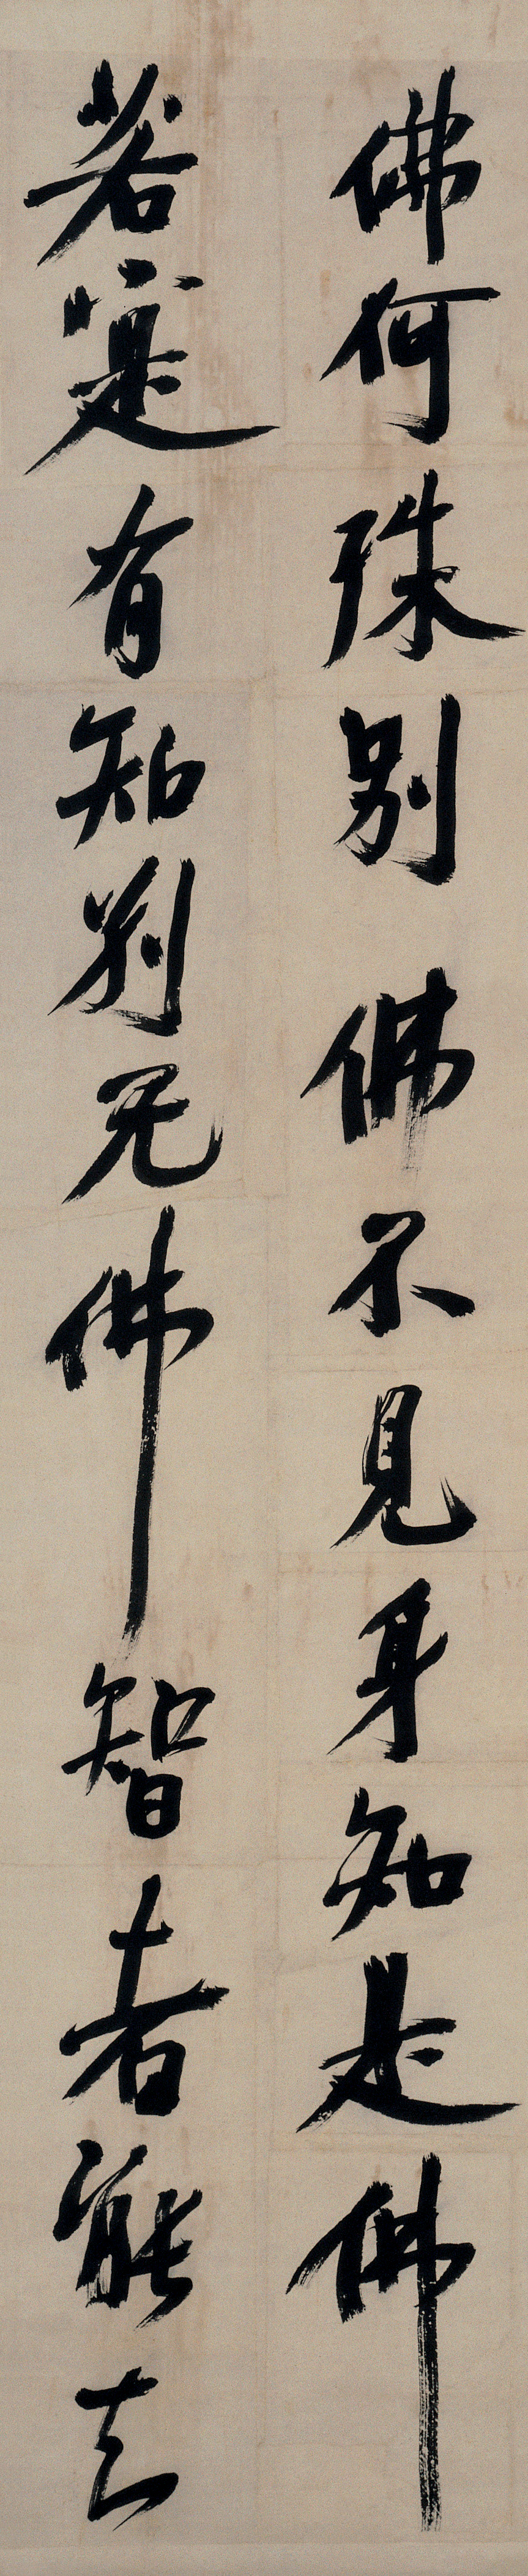 佛何殊別佛不見身知是佛
若寔有知別无佛智者能知